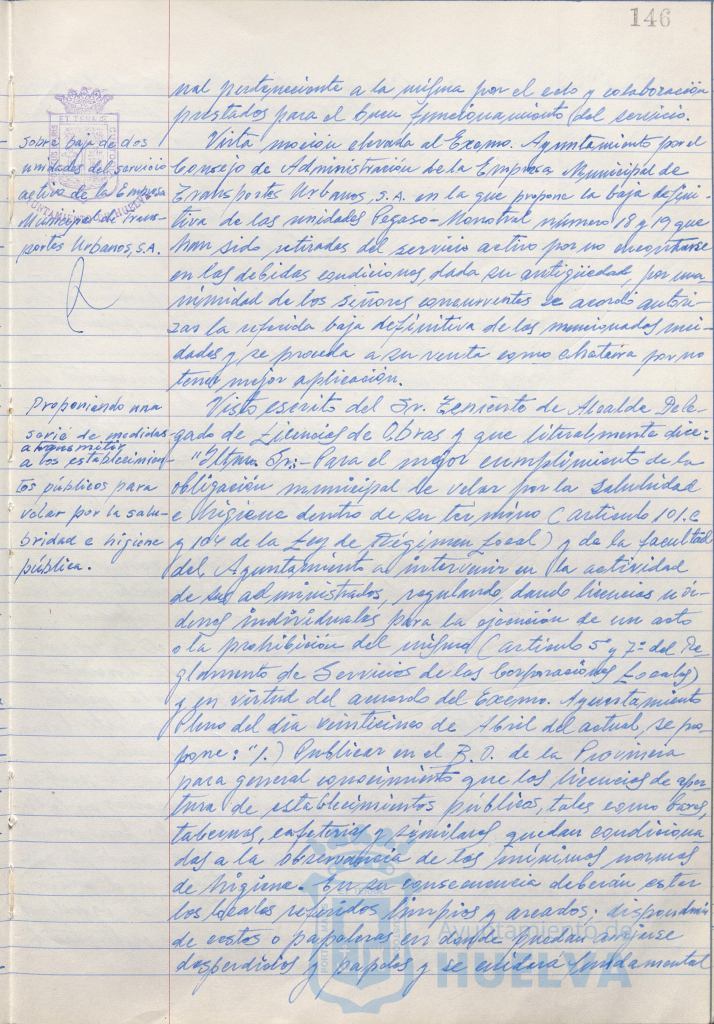 146
nal perteneciente a la misma por el celo y colaboración
prestados para el buen funcionamiento del servicio.
Sobre baja de dos
unidades del servicio
activo de la Empresa
Municipal de Trans-
portes Urbanos, S.A.
Vista moción elevada al Excmo. Ayuntamiento por el
Consejo de Administración de la Empresa Municipal de
Transportes Urbanos, S.A. en la que propone la baja defini-
tiva de las unidades Pegaso-Monotral número 18 y 19 que
han sido retirados del servicio activo por no encontrarse
en las debidas condiciones, dada su antigüedad, por una-
nimidad de los señores concurrentes se acordó autori-
zar la referida baja definitiva de las mencionadas uni-
dades y se proceda a su venta como chatarra por no
tener mejor aplicación.
Proponiendo una
serie de medidas
a los establecimien-
tos públicos para
velar por la salu-
bridad e higiene
pública.
Visto escrito del Sr. Teniente de Alcalde Dele-
gado de Licencias de Obras y que literalmente dice:
"Iltmo. Sr.:- Para el mejor cumplimiento de la
obligación municipal de velar por la salubridad
e higiene dentro de su termino (articulo 101.c
y 104 de la Ley de Régimen Local) y de la facultad
del Ayuntamiento a intervenir en la actividad
de sus administrados, regulando, dando licencias u ór-
denes individuales para la ejecución de un acto
o la prohibición del mismo (articulo 5º y 7º del Re-
glamento de Servicios de las Corporaciones Locales)
y en virtud del acuerdo del Excmo. Ayuntamiento
Pleno del día veinticinco de Abril del actual, se pro-
pone: "1.) Publicar en el B.O. de la Provincia
para general conocimiento que las licencias de aper-
tura de establecimientos públicos, tales como bares,
tabernas, cafeterias y similares, quedan condiciona-
das a la observancia de las mínimas normas
de higiene. En su consecuencia deberán estar
los locales referidos limpios y aseados; dispondrán
de cestos o papeleras en donde puedan arrojarse
desperdicios y papeles y se cuidará fundamental
Ayuntamiento de
HUELVA